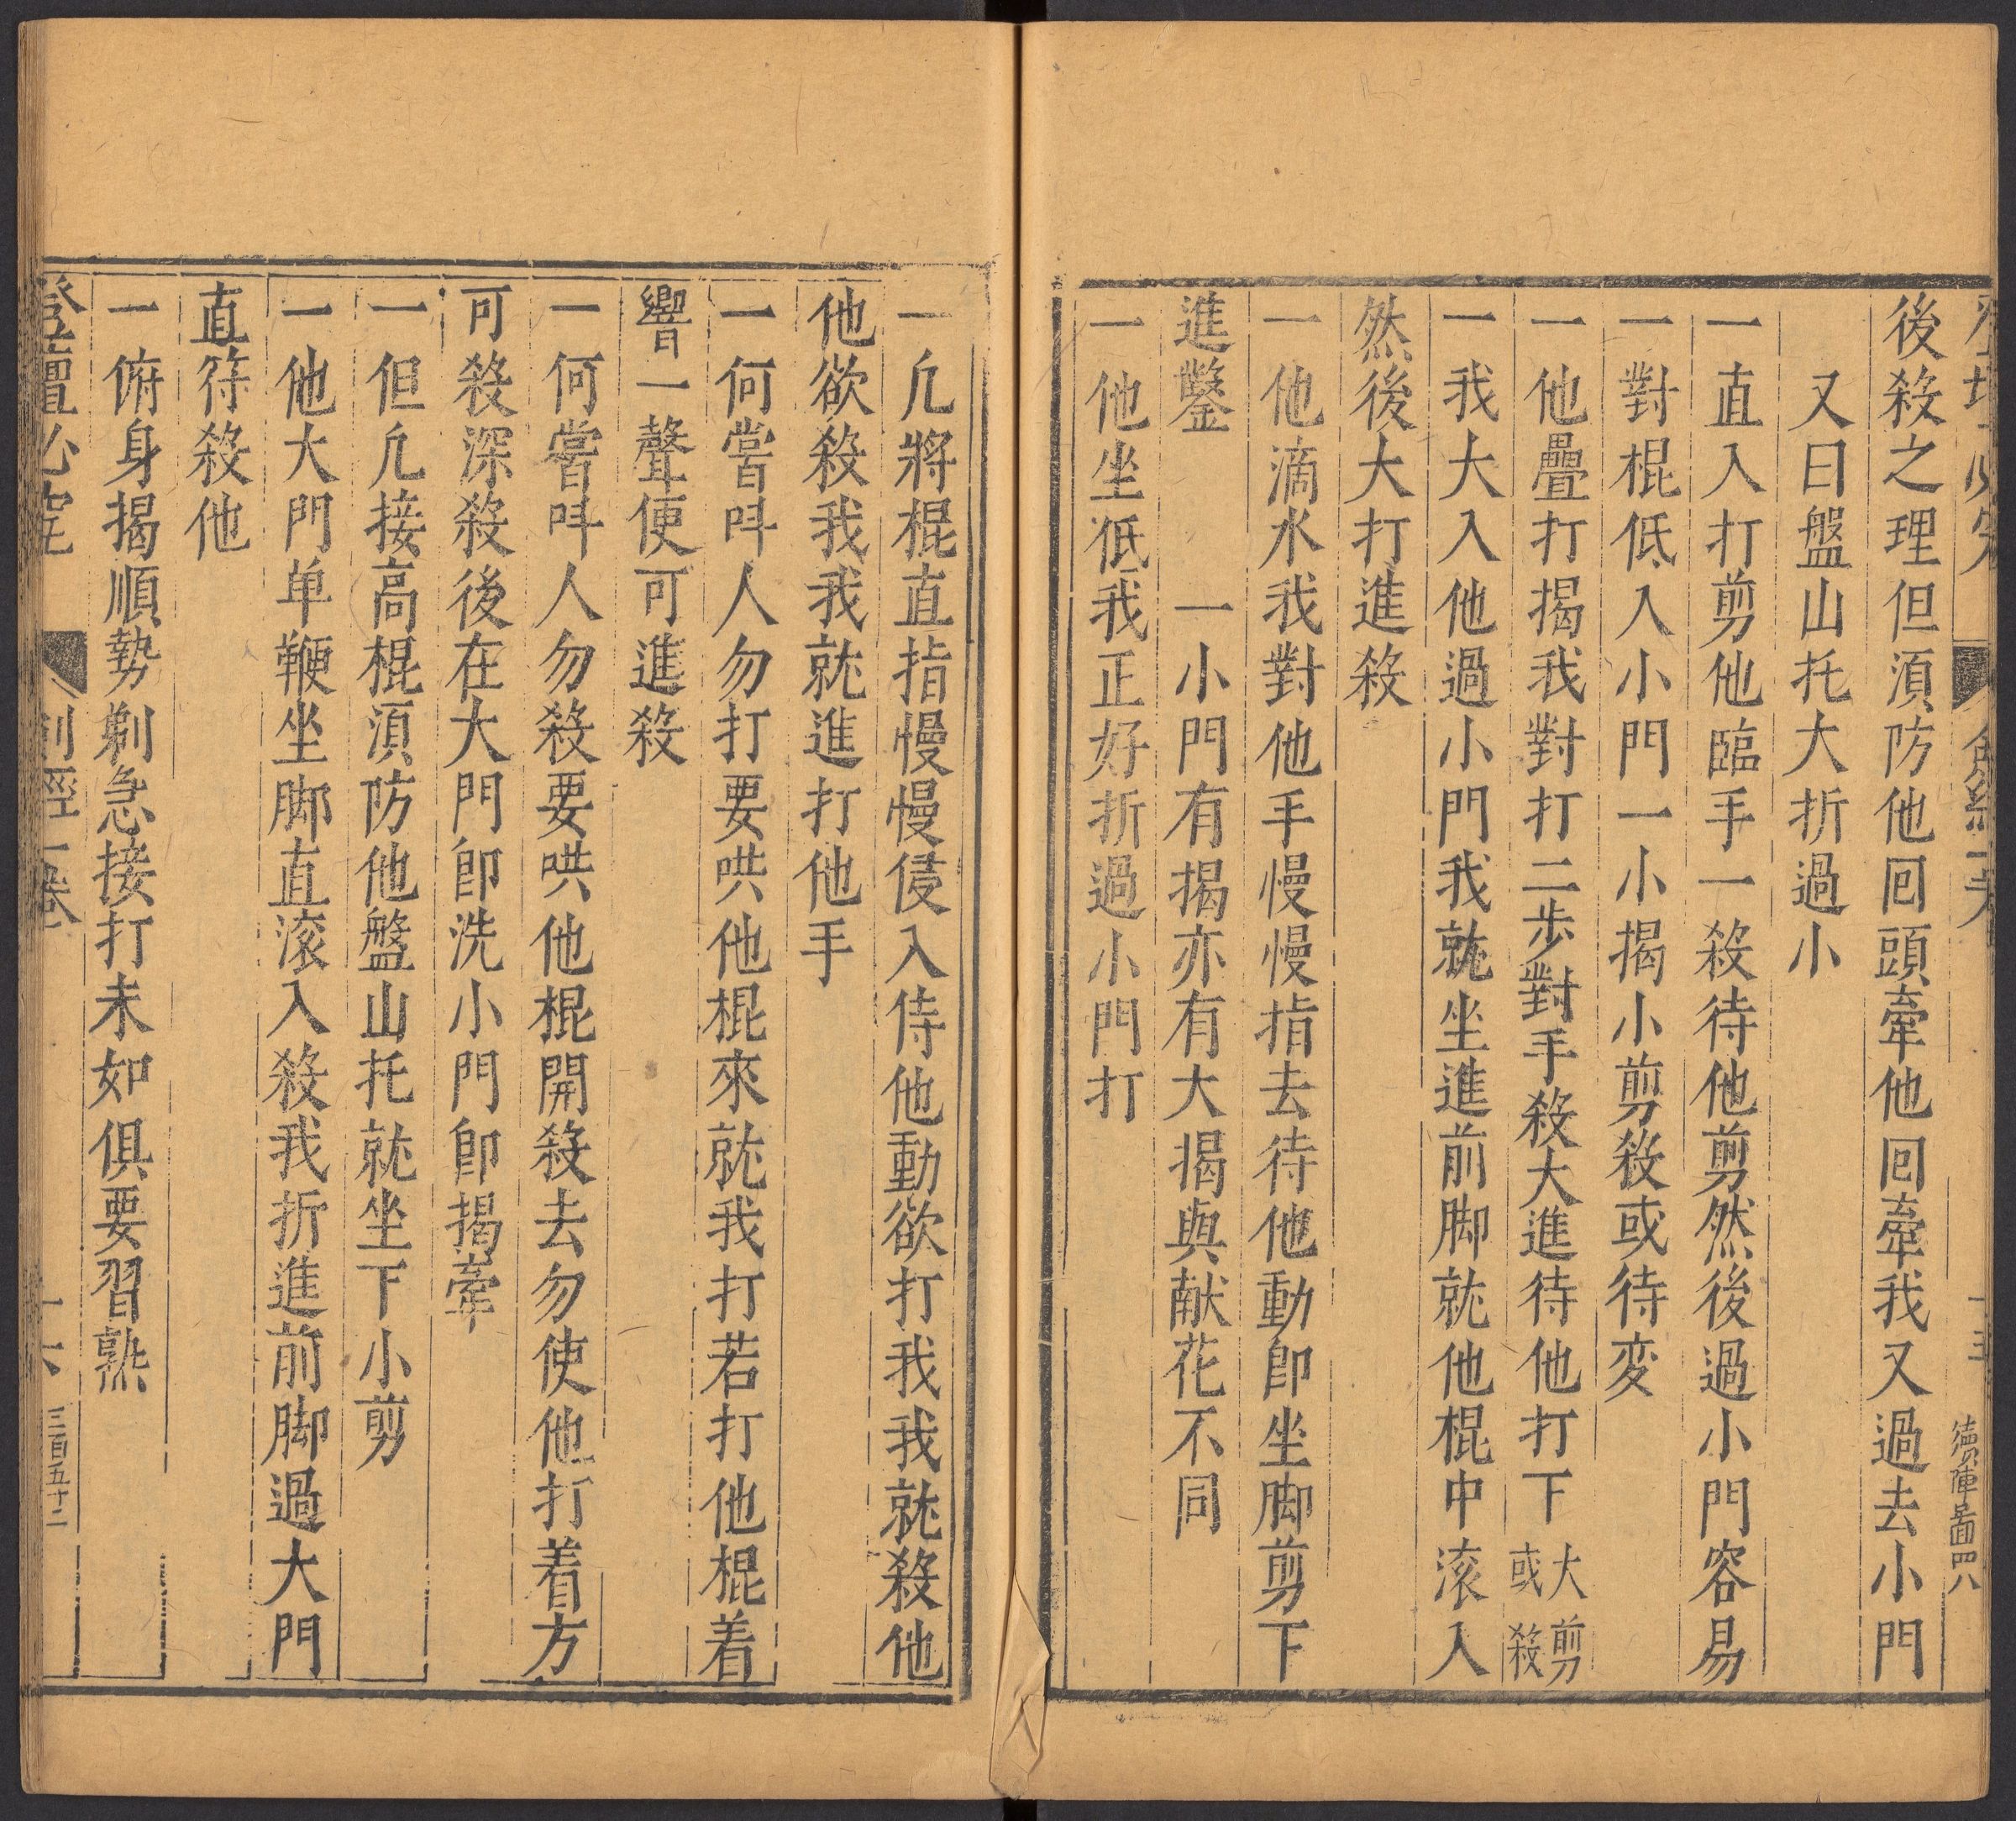 後殺之理但湏防他囘頭牽他囘牽我又過去小門
又曰盤山托大折過小
一直入打剪他臨手一殺待他剪然後過小門容易
一對棍低入小門一小揭小剪殺或待変
一他疊打揭我對打二步對手殺大進待他打下大剪或殺
一我大入他過小門我就坐進前脚就他棍中滚入
然後大打進殺
一他滴水我對他手慢慢指去待他動即坐脚剪下
進鑿　一小門有揭亦有大揭與献花不同
一他坐低我正好折過小門打
一凢將棍直指慢慢侵入侍他動欲打我我就殺他
他欲殺我我就進打他手
一何嘗呌人勿打要哄他棍來就我打若打他棍着
響一聲使可進殺
一何嘗呌人勿殺要哄他棍開殺去勿使他打着方
可殺深殺後在大門即洗小門即揭牽
一但凢接高棍湏防他盤山托就坐下小剪
一他大門单鞭坐脚直滚入殺我折進前脚過大門
直符殺他
一俯身揭順勢剃急接打未如俱要習熟
登壇必究
劍經一卷
十六
三百五十二